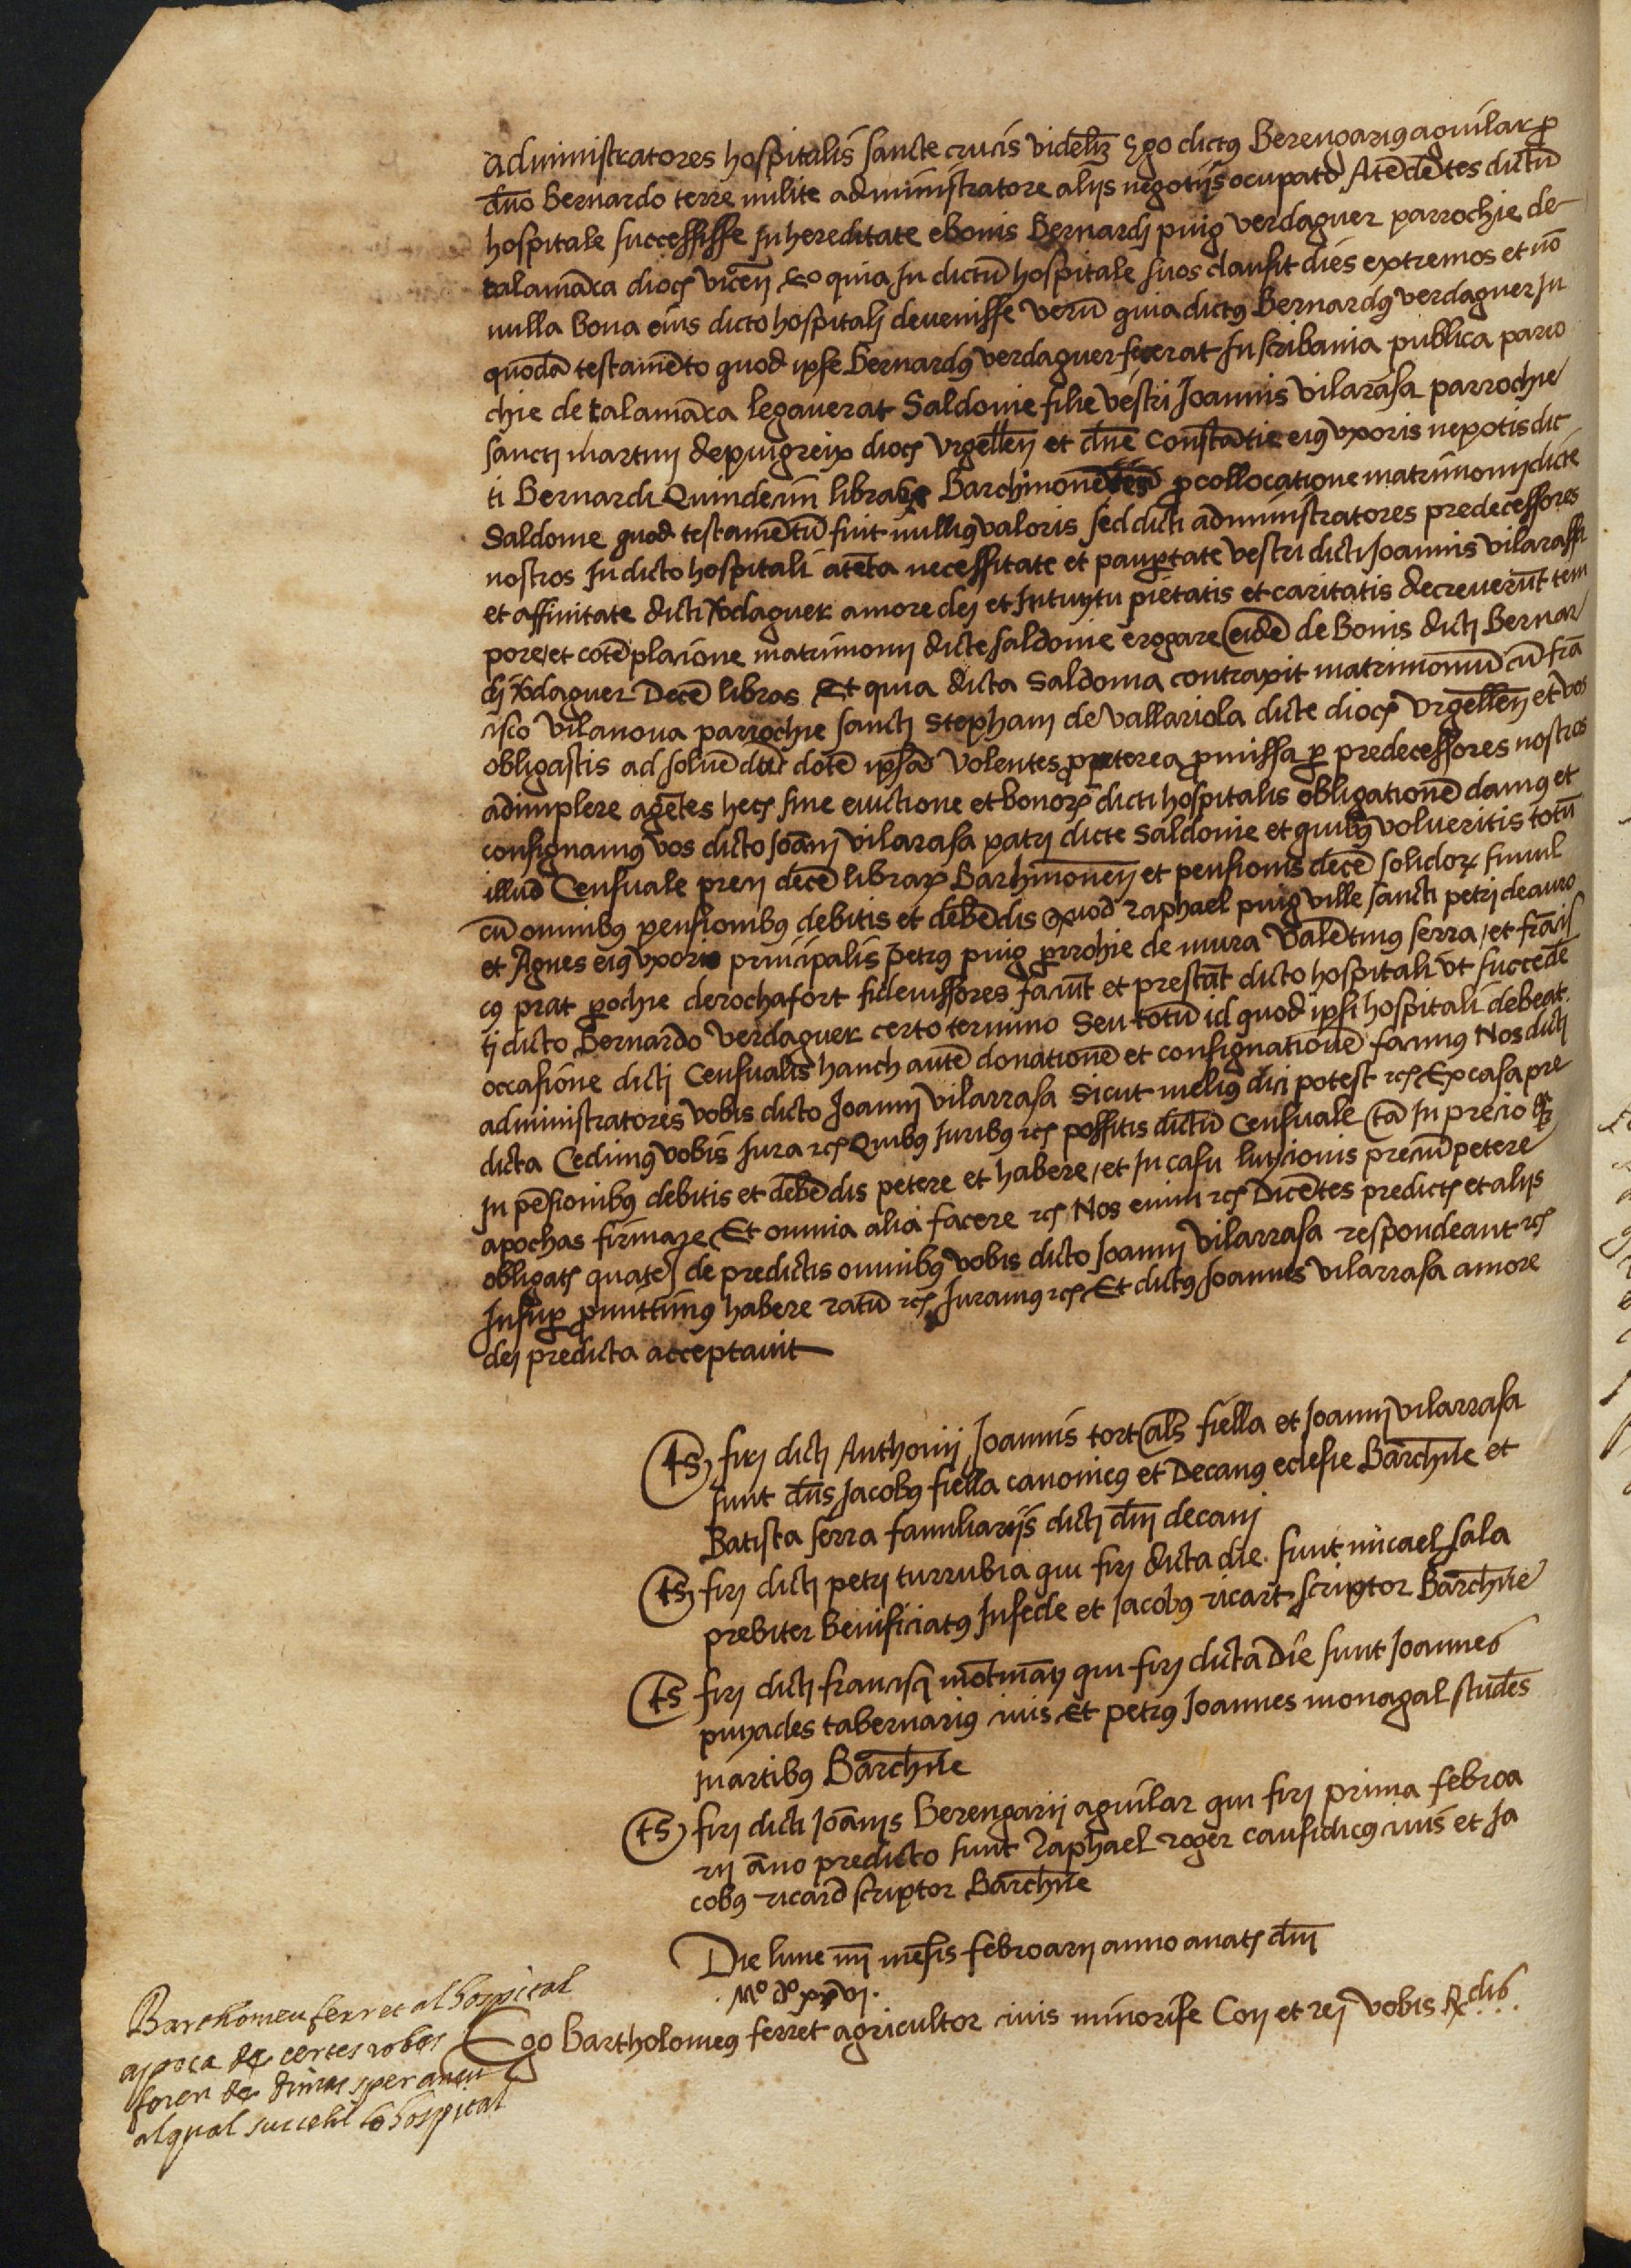 administratores hospitalis sancte crucis videlz Ego dictus Berengarius aguilar p
dno Bernardo terre milite administratore alijs negotijs ocupato Atēdētes dictū
hospitale successisse in hereditate e bonis Bernardj puig verdaguer parrochie de
talamāca diocs vicen eo quia In dictū hospitale suos clausit dies extremos et nō
nulla bona eius dicto hospitalj devenisse verū quia dictus Bernardus verdaguer In
quodā testamēto quod ipse Bernardus verdaguer fecerat In scribania publica parro
chie de talamāca legaverat Saldonie filie vestri Joannis vilarasa parrochie
sanctj martinj de puigreix diocs Urgellen et dne Constātie eius uxoris nepotis dic
ti Bernardi Quindecim libras Barchinonē p collocatione matrimonij dicte
Saldonie quod testamētū fuit nullius valoris sed dicti administratores predecessores
nostros In dicto hospitali atēta necessitate et paupertate vestri dicti Joannis vilarassa
et affinitate dicti Verdaguer amore dej et Intuytu pietatis et caritatis decreverūt tem
pore et cōtēplacione matrimonij dicte saldonie erogare eidē de bonis dictj Bernar
dj Verdaguer Decē libras Et quia dicta Saldonia contraxit matrimoniū cū frā
cisco vilanova parrochie sanctj Stephanj de vallariola dicte diocs Urgellen et vos
obligastis ad solvēdū dotē ipsā Volentes propterea promissa p predecessores nostros
adimplere agētes hecs sine evictione et bonorū dicti hospitalis obligationē damus et
consignamus vos dicto Joānj vilarasa patrj dicte Saldonie et quibus volueritis totū
illud Censuale precij decē librarū Barchinonen et pensionis decē solidorū simul
cū omnibus pensionibus debitis et debēdis Quod Raphael puig ville sancti petrj de auro
et Agnes eius uxoris principalis Petrus puig prrochie de mura Valētinus serra et frācis
cus prat prochie de rochafort fidejussores faciūt et prestāt dicto hospitali ut succedē
tj dicto Bernardo verdaguer certo termino Seu totū id quod ipsi hospitali debeat
occasione dictj Censualis hanch autē donationē et consignationē facimus Nos dictj
administratores vobis dicto Joannj vilarrasa Sicut melius dici potest etc Ex casa pre
dicta Cedimus vobis Jura etc Quibus Juribus etc possitis dictū Censuale tā In precio q
In pēsionibus debitis et debēdis petere et habere et In casu luycionis preciū petere
apochas firmare Et omnia alia facere etc Nos enim etc Dicētes predicts et alijs
obligats quates de predictis omnibus vobis dicto Joannj vilarrasa respondeant etc
Insup promittimus habere ratū etc Juramus etc Et dictus Joannes vilarrasa amore
dej predicta acceptavit
ts firj dicti Anthonij Joannis tort als fiella et Joannj vilarrasa
sunt dns Jacobus fiella canonicus et Decanus eclesie Barchne et
Batista serra familiarijs dictj dnj decanj
ts firj dictj petrj turrubia qui firj dicta die sunt micael sala
prebiter benificiatus In sede et Jacobus ricart scriptor Barchne
ts firj dicti francisci mōtmāy qui firj dicta Die sunt Joannes
puyades tabernarius civis Et petrus Joannes monagal studēs
In artibus Barchne
ts firj dicti Joānis Berengarij aguilar qui firj prima febroa
rij āno predicto sunt Raphael roger causidicus civis et Ja
cobus ricard scriptor Barchne
Die lune iiij mēsis febroarij anno a nats dnj
Mº dº xxvj
Ego Bartholomeus ferret agricultor civis minorise Conj et rej vobis
Barthomeu ferret al hospital
apoca de certes robes
foren de
al qual succehí lo hospital